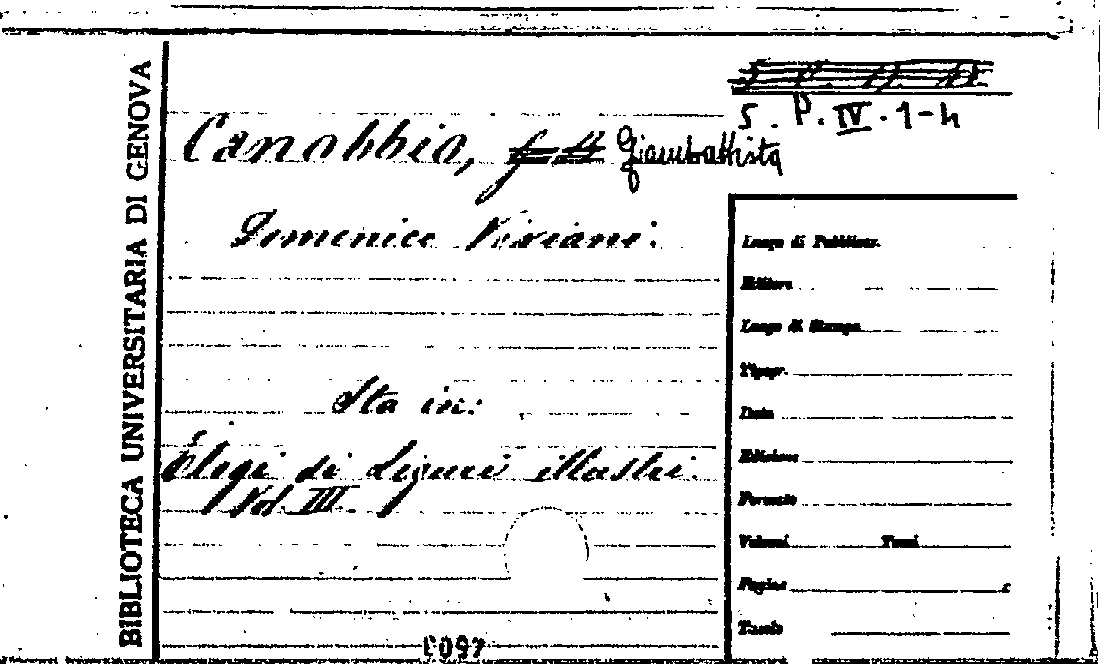 BIBLIOTECA UNIVERSITARIA DI GENOVA
5. P. IV. 1-4
Canobbio, Giambattista
Domenico Viviani.
Sta in:
Elogi di Liguri illustri.
Vol. III.
Luogo di Pubblicaz.
Editore
Luogo di Stampa
Tipogr.
Data
Edizione
Formato
Volumi Tomi
Pagine
Tavole
0097